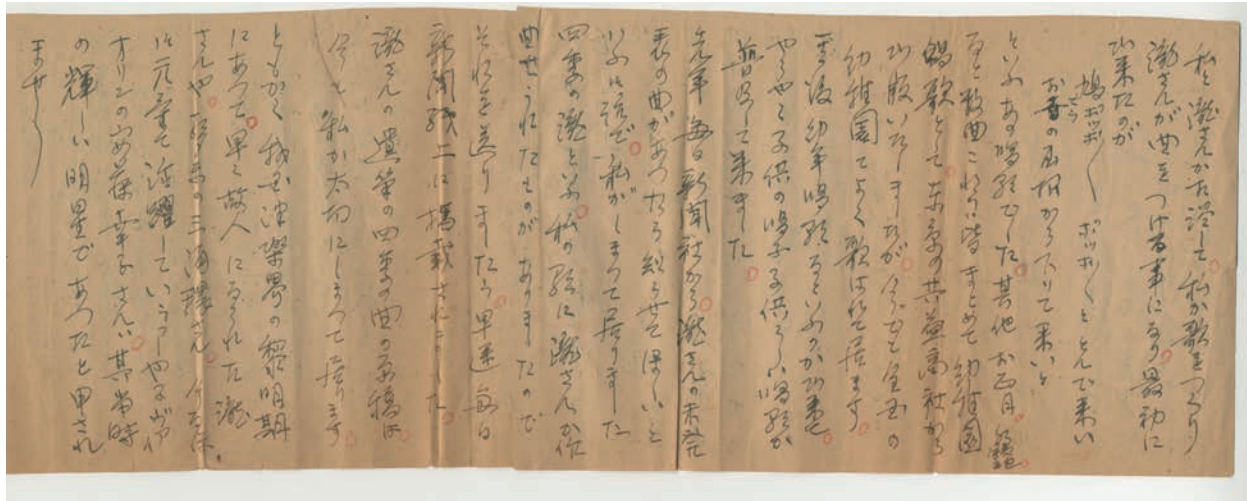 私と瀧さんが相談して私が歌をつくり
瀧さんが曲をつける事になり最初に
出来たのが
鳩ポッポ〱ポッポ〱ととんで来い
お寺の屋根から下りて来いと
といふあの唱歌でした其他お正月
など数曲これは皆まとめて幼稚園
唱歌として東京の共益商社から
出版いたしましたが今でも全国の
幼稚園でよく歌はれて居ます
其後幼年唱歌などといふのが出来て
やうやく子供の唱歌子供らしい唱歌が
普及して来ました
先年毎日新聞社から瀧さんの未発
表の曲があつたら知らせてほしいと
私がしまつて居りました
四季の瀧といふ私の歌に瀧さんが作
曲せられたものがありましたので
それを送りましたら早速毎日
新聞紙上に掲載されました
瀧さんの遺筆の四季の曲の原稿は
今も私が大切にしまつて居ります
ともかく我国洋楽界の黎明期
にあつて早く故人になられた瀧
さんや 三浦環さん 今なほ
に元気で活躍していらつしやるヴァイ
オリンの安藤幸子さんは其当時
の輝しい明星であつたと申され
ませう